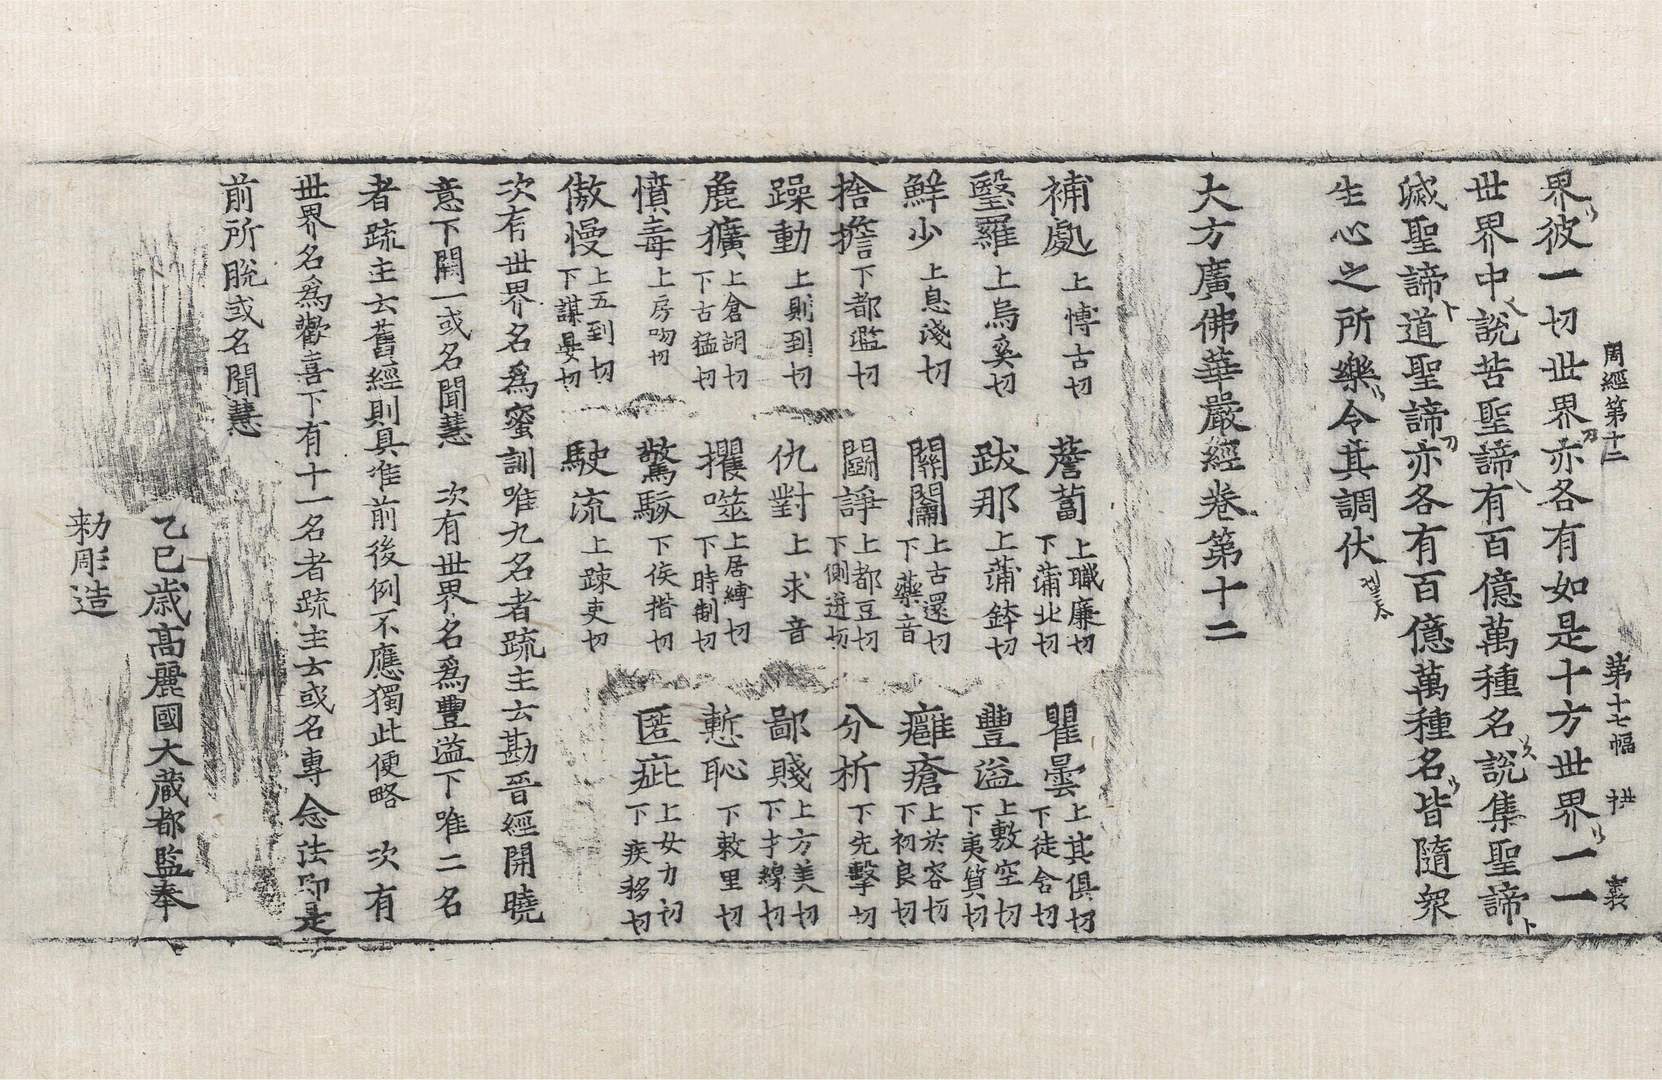 周經第十二 第十七幅 廿 義
界彼一切世界亦各有如是十方世界一一
世界中說苦聖諦有百億萬種名說集聖諦
滅聖諦道聖諦亦各有百億萬種名皆隨衆
生心之所樂令其調伏
大方廣佛華嚴經卷第十二
補處上博古切 薝蔔上職廉切下蒲北切 瞿曇上其俱切下徒含切
瑿羅上烏奚切 跋那上蒲鉢切 豐溢上敷空切下夷質切
鮮少上息淺切 關闟上古還切下藥音 癰瘡上於容切下初良切
捨擔下都濫切 鬪諍上都豆切下側迸切 分析下先擊切
躁動上則到切 仇對上求音 鄙賤上方美切下才線切
麁獷上倉胡切下古猛切 攫噬上居縛切下時制切 慙恥下敕里切
憤毒上房吻切 驚駭下侯揩切 匿疵上女力切下疾移切
傲慢上五到切下謀晏切 駛流上踈吏切
次有世界名爲蜜訓唯九名者疏主云勘晉經開曉
意下闕一或名聞慧 次有世界名爲豐溢下唯二名
者疏主云舊經則具准前後例不應獨此便略 次有
世界名爲歡喜下有十一名者疏主云或名專念法即是
前所脫或名聞慧
乙巳歲高麗國大藏都監奉
勑彫造